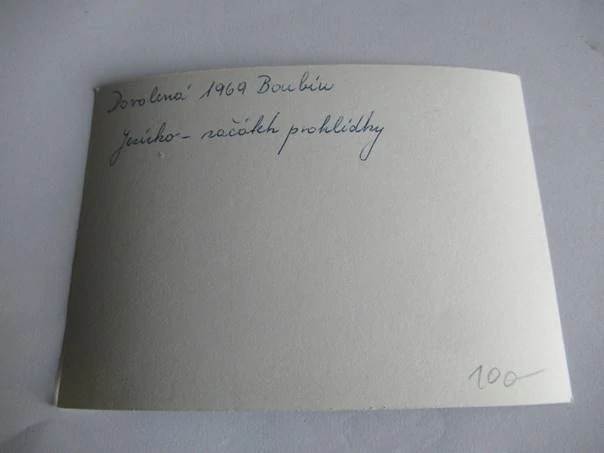 Dovolená 1969 Boubín
Jezírko - začátek prohlídky
100-